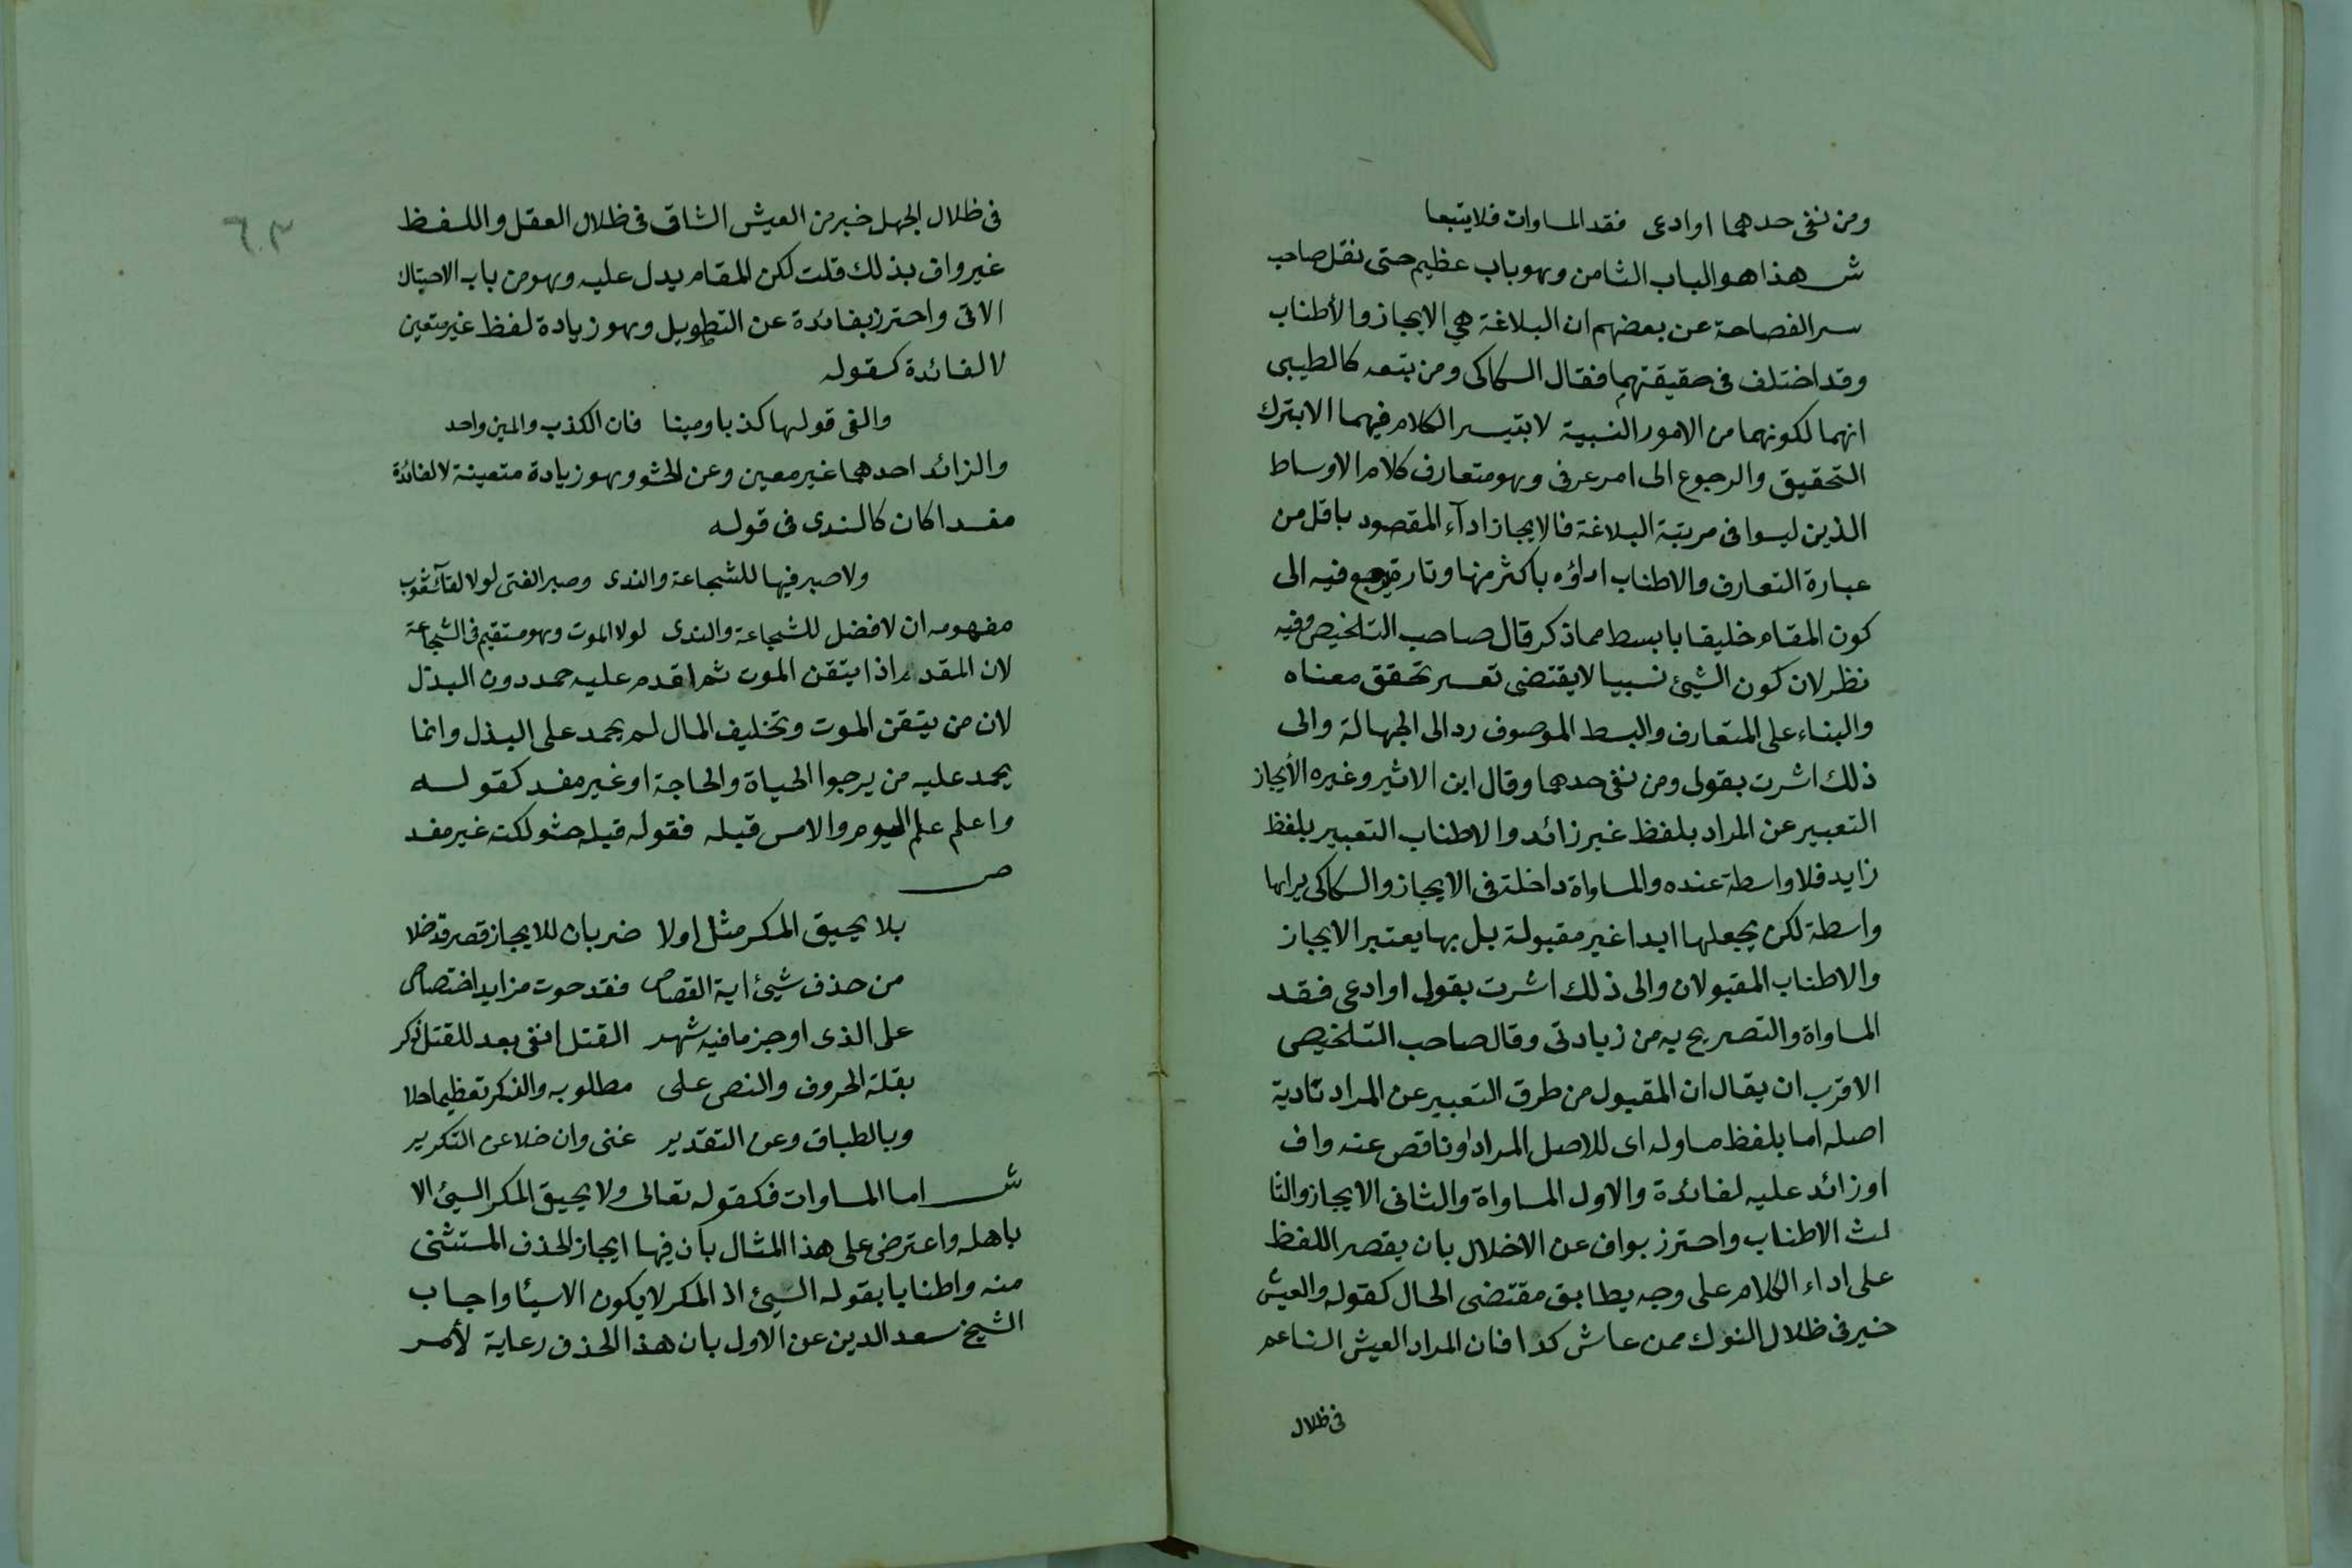 ومن نفى حدهما او ادعى فقد المساوات فلا يتبعا
ش هذا هو الباب الثامن وهو باب عظيم حتى نقل صاحب
سر الفصاحة عن بعضهم ان البلاغة هي الايجاز والأطناب
وقد اختلف فى حقيقتهما فقال السكاكى ومن تبعه كالطيبى
انهما لكونهما من الامور النسبية لا يتيسر الكلام فيهما الا بترك
التحقيق والرجوع الى امر عرفى وهو متعارف كلام الاوساط
الذين ليسوا فى مرتبة البلاغة فالايجاز ادآء المقصود باقل من
عبارة التعارف والاطناب اداؤه باكثر منها وتارة يرجع فيه الى
كون المقام خليقا بابسط مما ذكر قال صاحب التلخيص وفيه
نظر لان كون الشيئ نسبيا لا يقتضى تعسر تحقق معناه
والبناء على المتعارف والبسط الموصوف رد الى الجهالة والى
ذلك اشرت بقولى ومن نفى حدهما وقال ابن الاثير وغيره الأيجاز
التعبير عن المراد بلفظ غير زائد والاطناب التعبير بلفظ
زايد فلا واسطة عنده والمساواة داخلة فى الايجاز والسكاكى يراها
واسطة لكن يجعلها ابدا غير مقبولة بل بها يعتبر الايجاز
والاطناب المقبولان والى ذلك اشرت بقولى او ادعى فقد
المساواة والتصريح به من زيادتى وقال صاحب التلخيص
الاقرب ان يقال ان المقبول من طرق التعبير عن المراد تادية
اصله اما بلفظ مساو له اى للاصل المراد او ناقص عنه واف
او زائد عليه لفائدة والاول المساواة والثانى الايجاز والثا
لث الاطناب واحترز بواف عن الاخلال بان يقصر اللفظ
على اداء الكلام على وجه يطابق مقتضى الحال كقوله والعيش
خير فى ظلال النوك ممن عاش كدا فان المراد العيش الناعم
فى ظلال
فى ظلال الجهل خير من العيش الشاق فى ظلال العقل واللفظ
غير واف بذلك قلت لكن المقام يدل عليه وهو من باب الاحتباك
الاتى واحترز بفائدة عن التطويل وهو زيادة لفظ غير متعين
لا لفائدة كقوله
والفى قولها كذبا ومينا فان الكذب والمين واحد
والزائد احدهما غير معين وعن الحشو وهو زيادة متعينة لا لفائدة
مفسدا كان كالندى فى قوله
ولا صبر فيها للشجاعة والندى وصبر الفتى لولا لقآء شعوب
مفهومه ان لا فضل للشجاعة والندى لولا الموت وهو مستقيم فى الشجاعة
لان المقدم اذا يتقن الموت ثم اقدم عليه حمد دون البذل
لان من يتيقن الموت وتخليف المال لم يحمد على البذل وانما
يحمد عليه من يرجوا الحياة والحاجة او غير مفسد كقوله
واعلم علم اليوم والامس قبله فقوله قبله حشو لكنه غير مفسد
ص
بلا يحيق المكر مثل اولا ضربان للايجاز قصر قد خلا
من حذف شيئ اية القصاص فقد حوت مزايد اختصاص
على الذى اوجز ما فيه شهر القتل انفى بعد للقتل ذكر
بقلة الحروف والنص على مطلوبه والفكر تعظيما جلا
وبالطباق وعن التقدير غنى وان خلا عن التكرير
ش اما المساوات فكقوله تعالى ولا يحيق المكر السيئ الا
باهله واعترض على هذا المثال بان فيها ايجاز الحذف المستثنى
منه واطنابا بقوله السيئ اذ المكر لا يكون الا سيئا واجاب
الشيخ سعد الدين عن الاول بان هذا الحذف رعاية لأمر